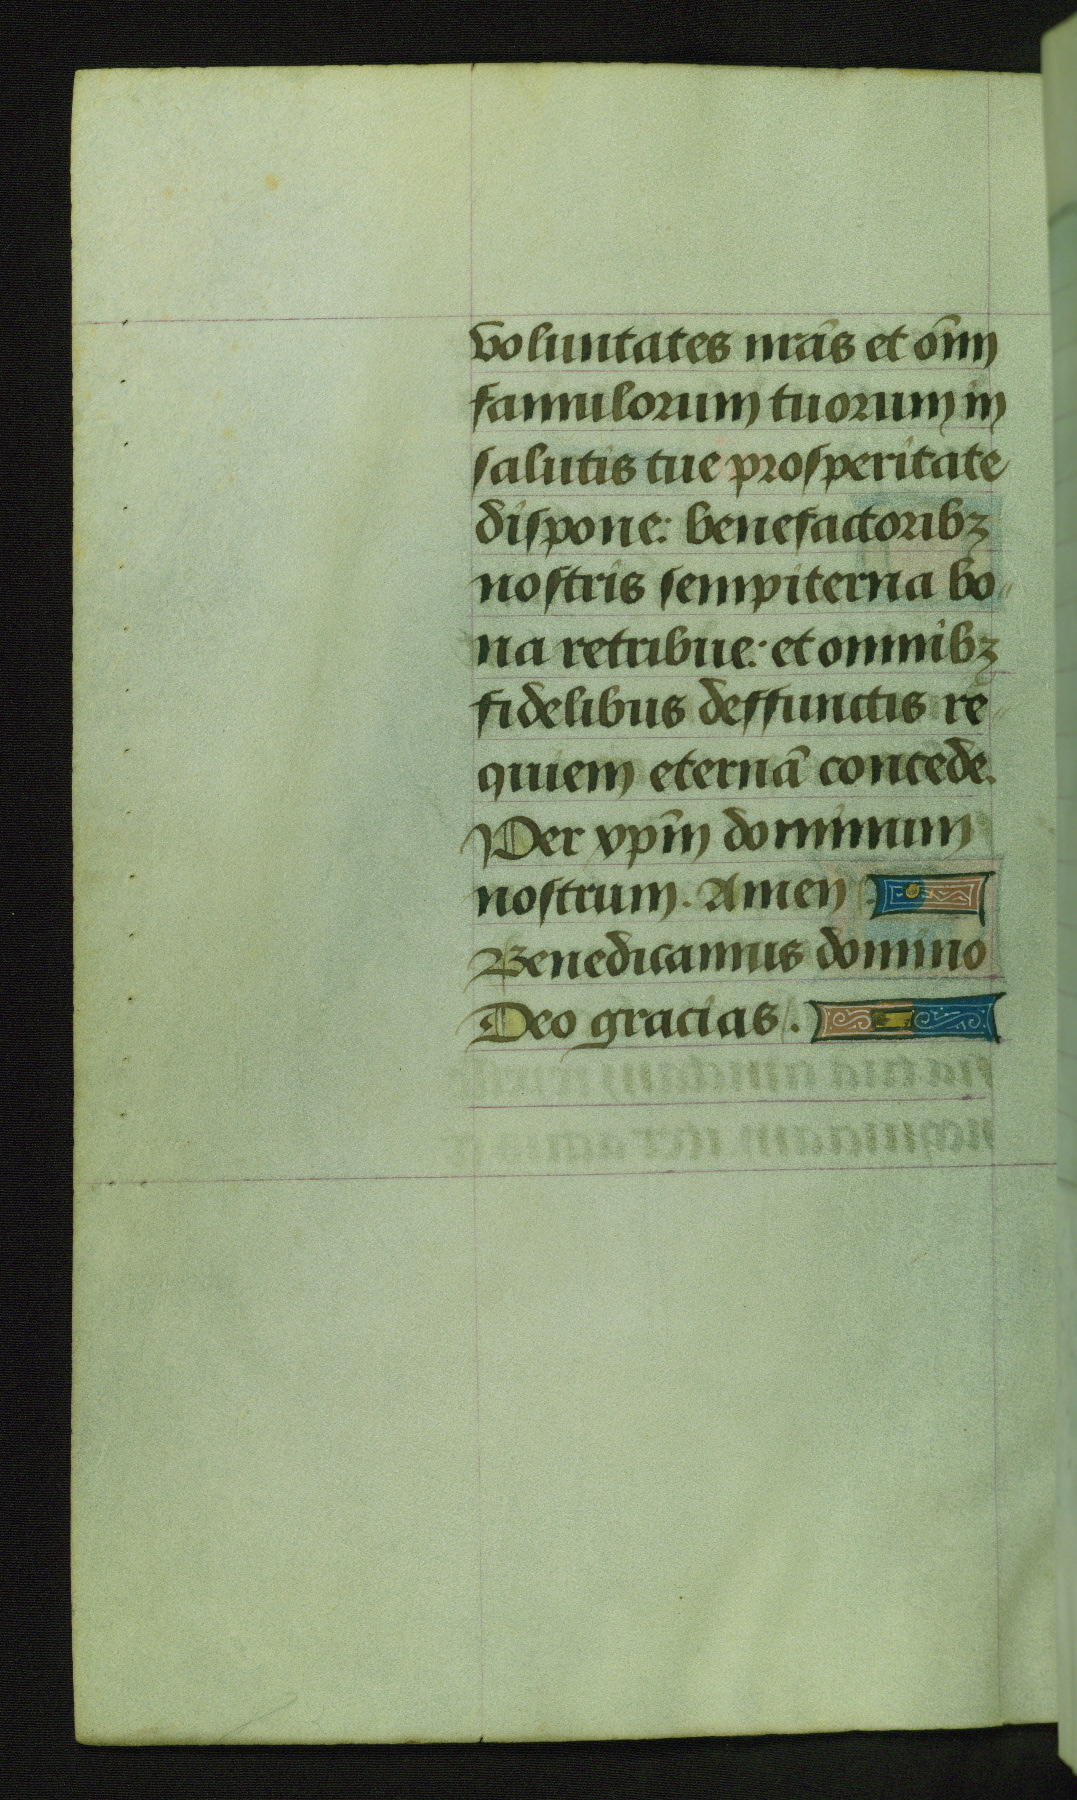 voluntates nr̃as et om̃
famulorum tuorum in
salutis tue prosperitate
dispone: benefactoribꝫ
nostris sempiterna bo-
na retribue: et omnibꝫ
fidelibus deffunctis re-
quiem eternã concede.
Per xp̃m dominum
nostrum. Amen.
Benedicamus domino
Deo gracias.